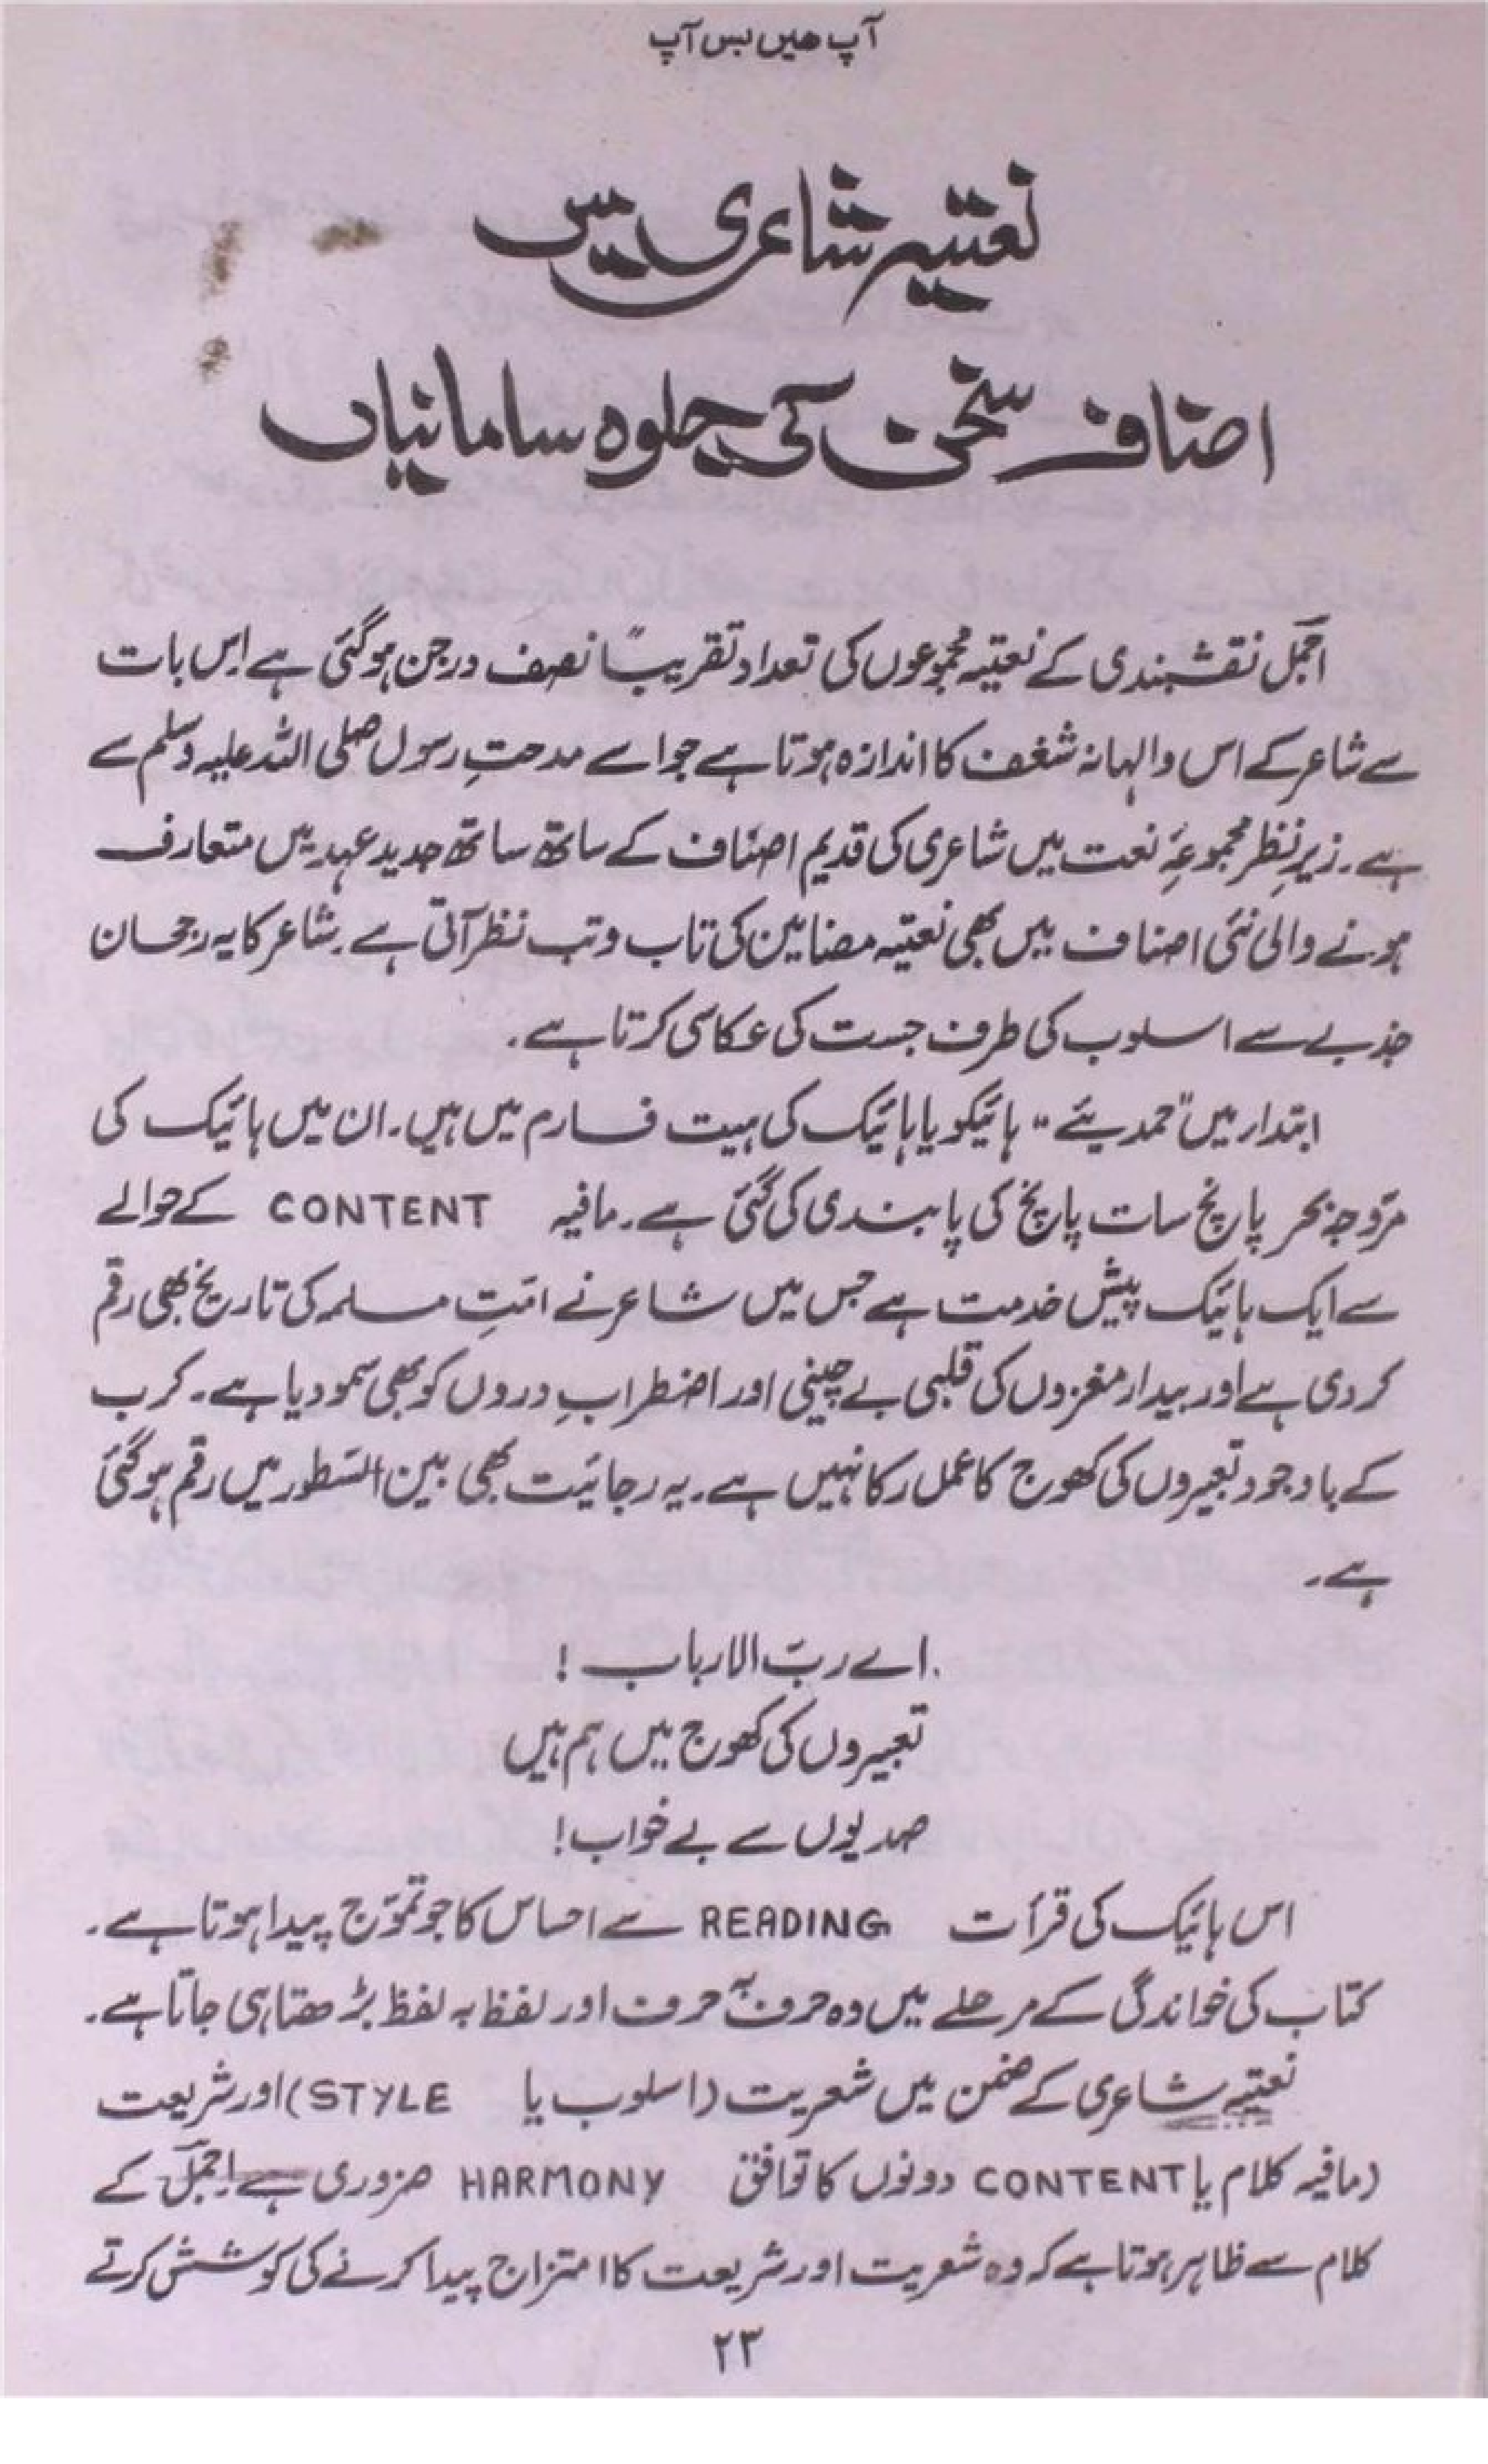 آپ ھیں بس آپ
نعتیہ شاعری میں
اصناف سخن کی جلوہ سامانیاں
اجمل نقشبندی کے نعتیہ مجموعوں کی تعداد تقریباً نصف درجن ہو گئی ہے اس بات
سے شاعر کے اس والہانہ شغف کا اندازہ ہوتا ہے جو اسے مدحتِ رسول صلی اللہ علیہ وسلم سے
ہے۔ زیرِ نظر مجموعۂ نعت میں شاعری کی قدیم اصناف کے ساتھ ساتھ جدید عہد میں متعارف
ہونے والی نئی اصناف میں بھی نعتیہ مضامین کی تاب و تب نظر آتی ہے۔ شاعر کا یہ رجحان
جذبے سے اسلوب کی طرف جست کی عکاسی کرتا ہے۔
ابتدا٫ میں "حمدیئے" ہائیکو یا ہائیک کی ہیت فارم میں ہیں۔ ان میں ہائیک کی
مروّجہ بحر پانچ سات پانچ کی پابندی کی گئی ہے۔ مافیہ CONTENT کے حوالے
سے ایک ہائیک پیش خدمت ہے جس میں شاعر نے امّتِ مسلمہ کی تاریخ بھی رقم
کر دی ہے اور بیدار مغزوں کی قلبی بے چینی اور اضطرابِ دروں کو بھی سمو دیا ہے۔ کرب
کے باوجود تعبیروں کی کھوج کا عمل رکا نہیں ہے۔ یہ رجائیت بھی بین السّطور میں رقم ہو گئی
ہے۔
اے ربّ الارباب!
تعبیروں کی کھوج میں ہم ہیں
صدیوں سے بے خواب!
اس ہائیک کی قرأت READING سے احساس کا جو تموّج پیدا ہوتا ہے۔
کتاب کی خواندگی کے مرحلے میں وہ حرف بہ حرف اور لفظ بہ لفظ بڑھتا ہی جاتا ہے۔
نعتیہ شاعری کے ضمن میں شعریت (اسلوب یا STYLE) اور شریعت
(مافیہ کلام یا CONTENT دونوں کا توافق HARMONY ضروری ہے۔ اجمل کے
کلام سے ظاہر ہوتا ہے کہ وہ شعریت اور شریعت کا امتزاج پیدا کرنے کی کوشش کرتے
۲۳